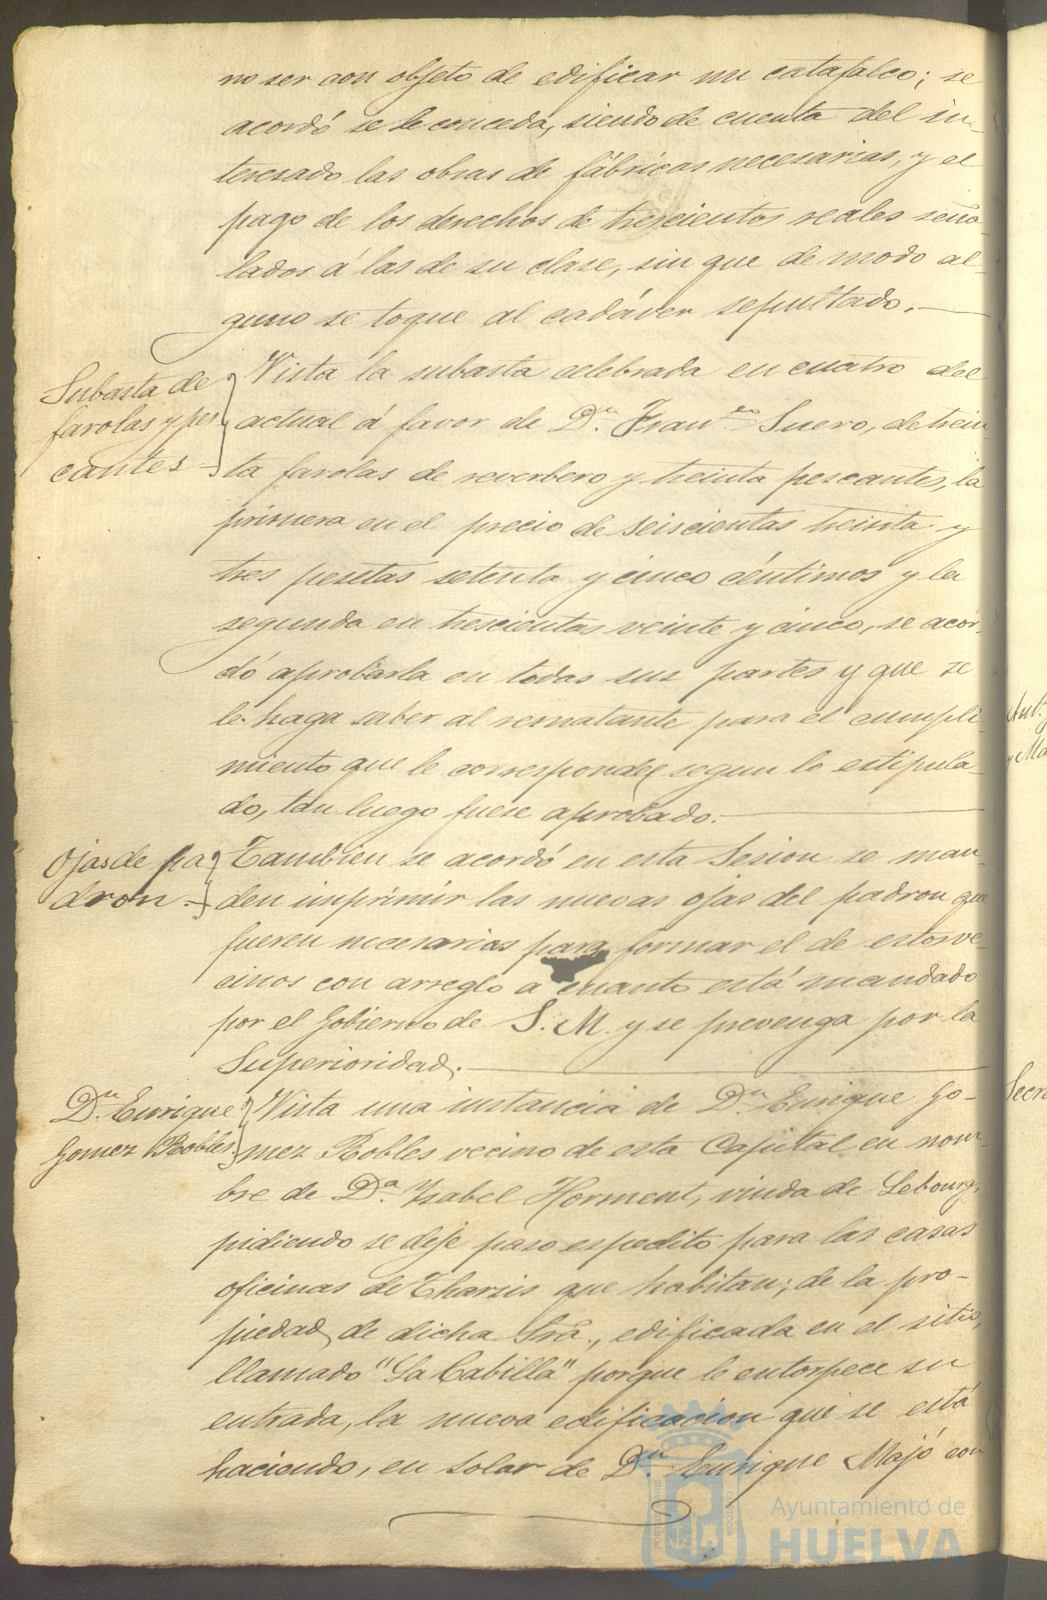 no ser con objeto de edificar un catafalco; se
acordó se le conceda, siendo de cuenta del in-
teresado las obras de fábricas necesarias, y el
pago de los derechos de trescientos reales seña-
lados á las de su clase, sin que de modo al-
guno se toque al cadáver sepultado.
Subasta de
farolas y pes
cantes
Vista la subasta celebrada en cuatro del
actual á favor de Dn. Franco. Suero, de trein-
ta farolas de reverbero y treinta pescantes, la
primera en el precio de seiscientas treinta y
tres pesetas setenta y cinco céntimos y la
segunda en trescientas veinte y cinco, se acor-
dó aprobarla en todas sus partes y que se
le haga saber al rematante para el cumpli-
miento que le corresponde segun lo estipula-
do, tan luego fuese aprobado.
Ojas de pa
dron.
Tambien se acordó en esta Sesion se man-
den imprimir las nuevas ojas del padron que
fueren necesarias para formar el de estos ve-
cinos con arreglo a cuanto está mandado
por el Gobierno de S. M. y se prevenga por la
Superioridad.
Dn. Enrique
Gomez Robles
Vista una instancia de Dn. Enrique Go-
mez Robles vecino de esta Capital en nom-
bre de Da. Isabel Horment, viuda de Lebourg,
pidiendo se deje paso espedito para las casas
oficinas de Tharsis que habitan; de la pro-
piedad de dicha Sra., edificada en el sitio,
llamado "La Cabilla" porque le entorpece su
entrada, la nueva edificacion que se está
haciendo, en solar de Dn. Enrique Majó con
Ayuntamiento de
HUELVA